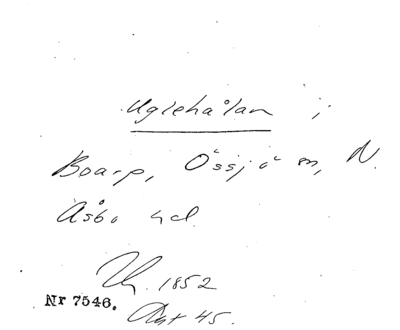 Uglehålan i
Boarp, Össjö sn, N.
Åsbo hd.
1852
Nr 7546.
Akt 45.